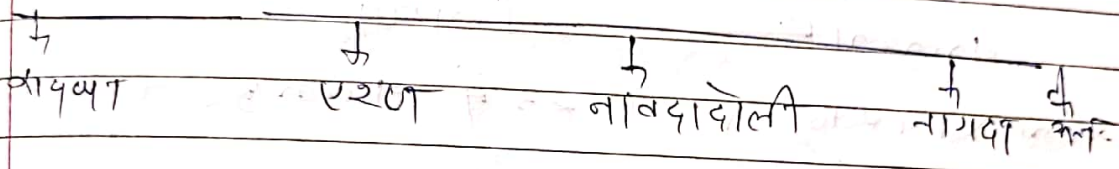 कायथा एरण नावदाटोली नागदा